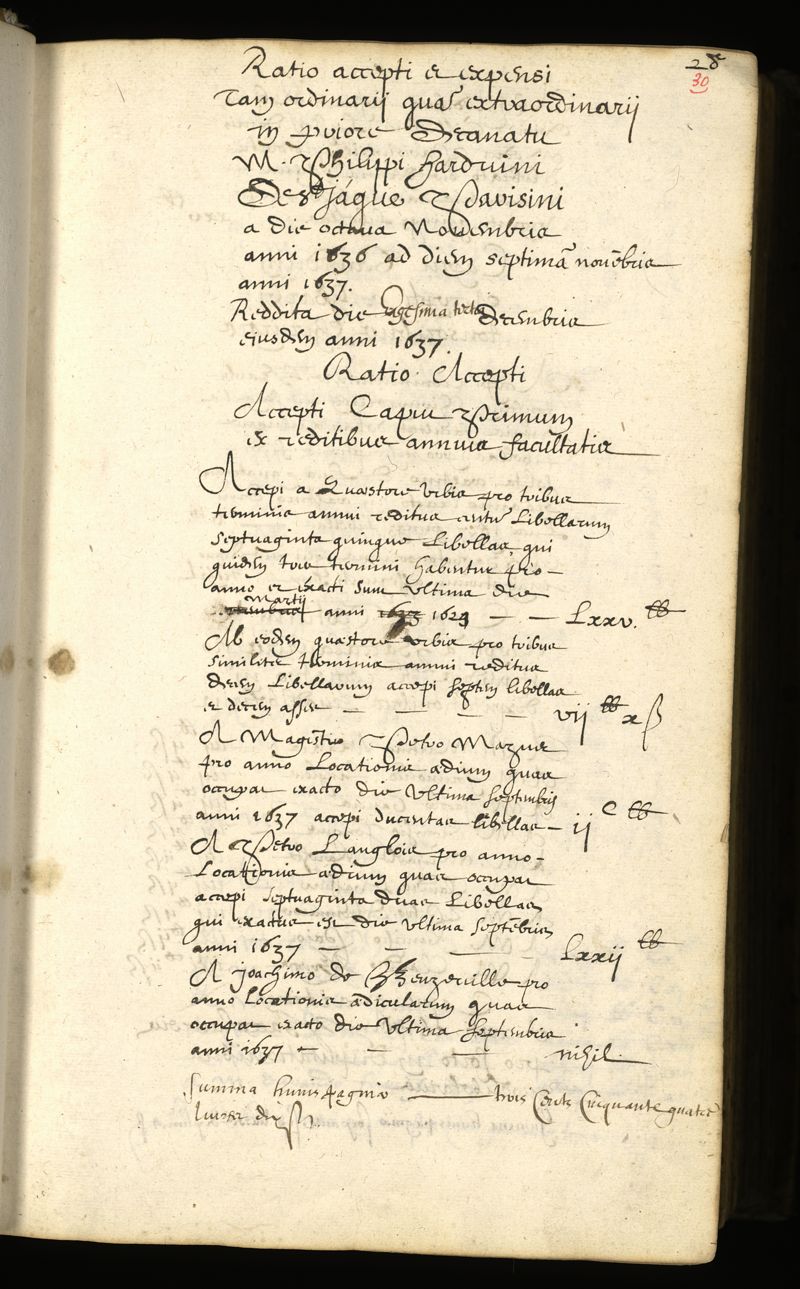 28
30
Ratio accepti et expensi
Tam ordinarij quā extraordinarij
in priore Decanatu
M. Philippi Harduini
De Sᵗ Jáque Parisini
a die octaua Nouembris
anni 1636 ad diem septimā nouēbris
anni 1637.
Reddita die vigesima tertia decembris
ejusdem anni 1637.
Ratio Accepti
Accepti Caput Primum
ex reditibus annuis facultatis
Accepi a Quæstore vrbis pro tribus
terminis annui reditus centū Libellarum
septuaginta quinque Libellas, qui
quidem tres termini habentur pro
anno et exacti sunt vltima die
Martij
anni 1633 1624 — — Lxxv. ℔
Ab eodem quæstore vrbis pro tribus
similiter terminis annui reditus
decem Libellarum accepi septem libellas
et decem asses — — — — vij ℔ x ß
A Magistro Petro Mazure
pro anno Locationis ædium quas
occupat exacto die vltima septembris
anni 1637 accepi ducentas libellas — ij C ℔
A Petro Langlois pro anno
Locationis ædium quas occupat
accepi septuaginta duas Libellas
qui exactus est die vltima septēbris
anni 1637 — — — Lxxij ℔
A joachimo de Benzeuille pro
anno Locationis ædicularum quas
occupat exacto die vltima septembris
anni 1637 — — — nihil
Summa huius paginæ — trois Cents Cinquante quatre
liures dix ß.